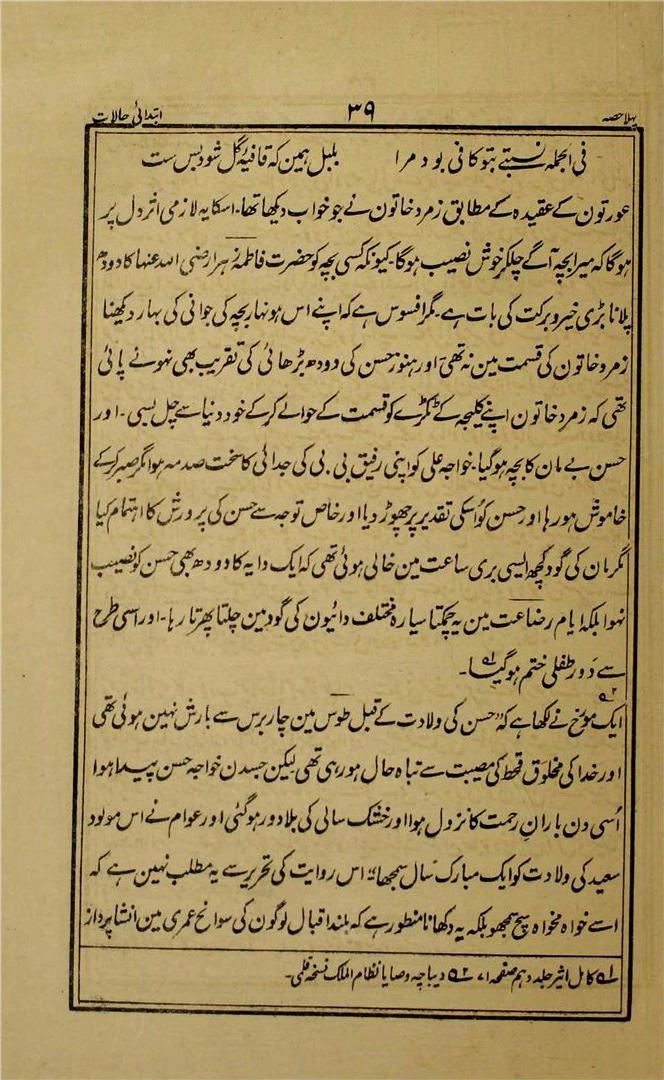 پہلا حصہ ۳۹ ابتدائی حالات
فی الجملہ نسبتے بتو کافی بود مرا بلبل ہمین کہ قافیۂ گل شود بس ست
عورتون کے عقیدہ کے مطابق زمرد خاتون نے جو خواب دیکھا تھا۔ اسکا یہ لازمی اثر دل پر
ہوگا کہ میرا بچہ آگے چلکر خوش نصیب ہوگا۔ کیونکہ کسی بچہ کو حضرت فاطمہ زہرا رضی اللہ عنہا کا دودھ
پلانا بڑی خیر و برکت کی بات ہے۔ مگر افسوس ہے کہ اپنے اس ہونہار بچہ کی جوانی کی بہار دیکھنا
زمرد خاتون کی قسمت مین نہ تھی اور ہنوز حسن کی دودھ بڑھائی کی تقریب بھی نہونے پائی
تھی کہ زمرد خاتون اپنے کلیجہ کے ٹکڑے کو قسمت کے حوالے کرکے خود دنیا سے چل بسی۔ اور
حسن بے مان کا بچہ ہوگیا۔ خواجہ علی کو اپنی رفیق بی بی کی جدائی کا سخت صدمہ ہوا مگر صبر کرکے
خاموش ہو رہا اور حسن کو اُسکی تقدیر پر چھوڑ دیا اور خاص توجہ سے حسن کی پرورش کا اہتمام کیا
مگر مان کی گود کچھ ایسی بری ساعت مین خالی ہوئی تھی کہ ایک دایہ کا دودھ بھی حسن کو نصیب
نہوا بلکہ ایام رضاعت مین یہ چمکتا سیارہ مختلف دائیون کی گود مین چلتا پھرتا رہا۔ اور اسی طرح
سے دَور طفلی ختم ہوگیا۔ ؎۱
ایک مورّخ ؎۲ نے لکھا ہے کہ "حسن کی ولادت کے قبل طوس مین چار برس سے بارش نہین ہوئی تھی
اور خدا کی مخلوق قحط کی مصیبت سے تباہ حال ہو رہی تھی لیکن جسدن خواجہ حسن پیدا ہوا
اُسی دن بارانِ رحمت کا نزول ہوا اور خشک سالی کی بلا دور ہوگئی اور عوام نے اس مولود
سعید کی ولادت کو ایک مبارک سال سمجھا" اس روایت کی تحریر سے یہ مطلب نہین ہے کہ
اسے خواہ مخواہ سچ سمجھو بلکہ یہ دکھانا منظور ہے کہ بلند اقبال لوگون کی سوانح عمری مین انشا پرداز
؎۱ کامل اثیر جلد دہم صفحہ ۷۱ ؎۲ دیباچہ وصایا نظام الملک نسخہ قلمی۔